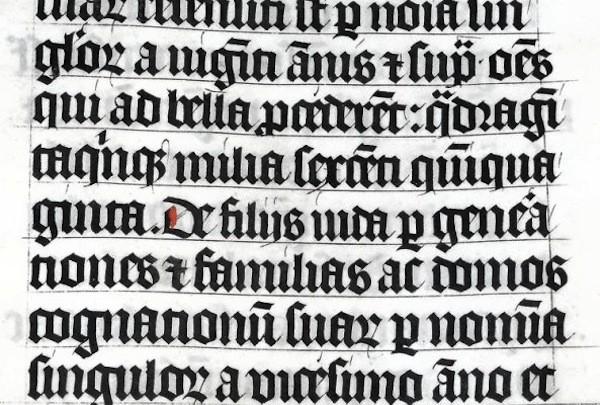 suaꝝ recensiti st̄ ꝑ noīa sin
gloꝝ a uigīti ānis ⁊ sup̄ · oēs
qui ad bella ꝓcederēt : q̄dragī
taqinqꝫ milia sexcēti qūiqua
ginta . De filijs iuda ꝑ gene͛a
tiones ⁊ familias ac domos
cognationū suaꝝ ꝑ nomīa
singuloꝝ a vicesimo āno et